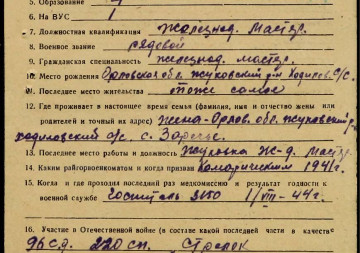 5. Образование 4
6. На ВУС 1
7. Должностная квалификация железнод. Мастер.
8. Военное звание рядовой
9. Гражданская специальность железнод. мастер.
10. Место рождения Орловская обл. Жуковский р-н Ходилов. с/с.
11. Последнее место жительства тоже самое
12. Где проживает в настоящее время семья (фамилия, имя и отчество жены или
родителей и точный их адрес) жена-Орлов. обл. Жуковский р.
Ходиловский с/с. с. Заречье.
13. Последнее место работы и должность Жуковка ж-д. Мастер
14. Каким райгорвоенкоматом и когда призван Комаричским 1941 г.
15. Когда и где проходил последний раз медкомиссию и результат годности к
военной службе Госпиталь 3180 1/VIII-44 г.
16. Участие в Отечественной войне (в составе какой последней части и в качестве
96 сд. 220 сп. Стрелок